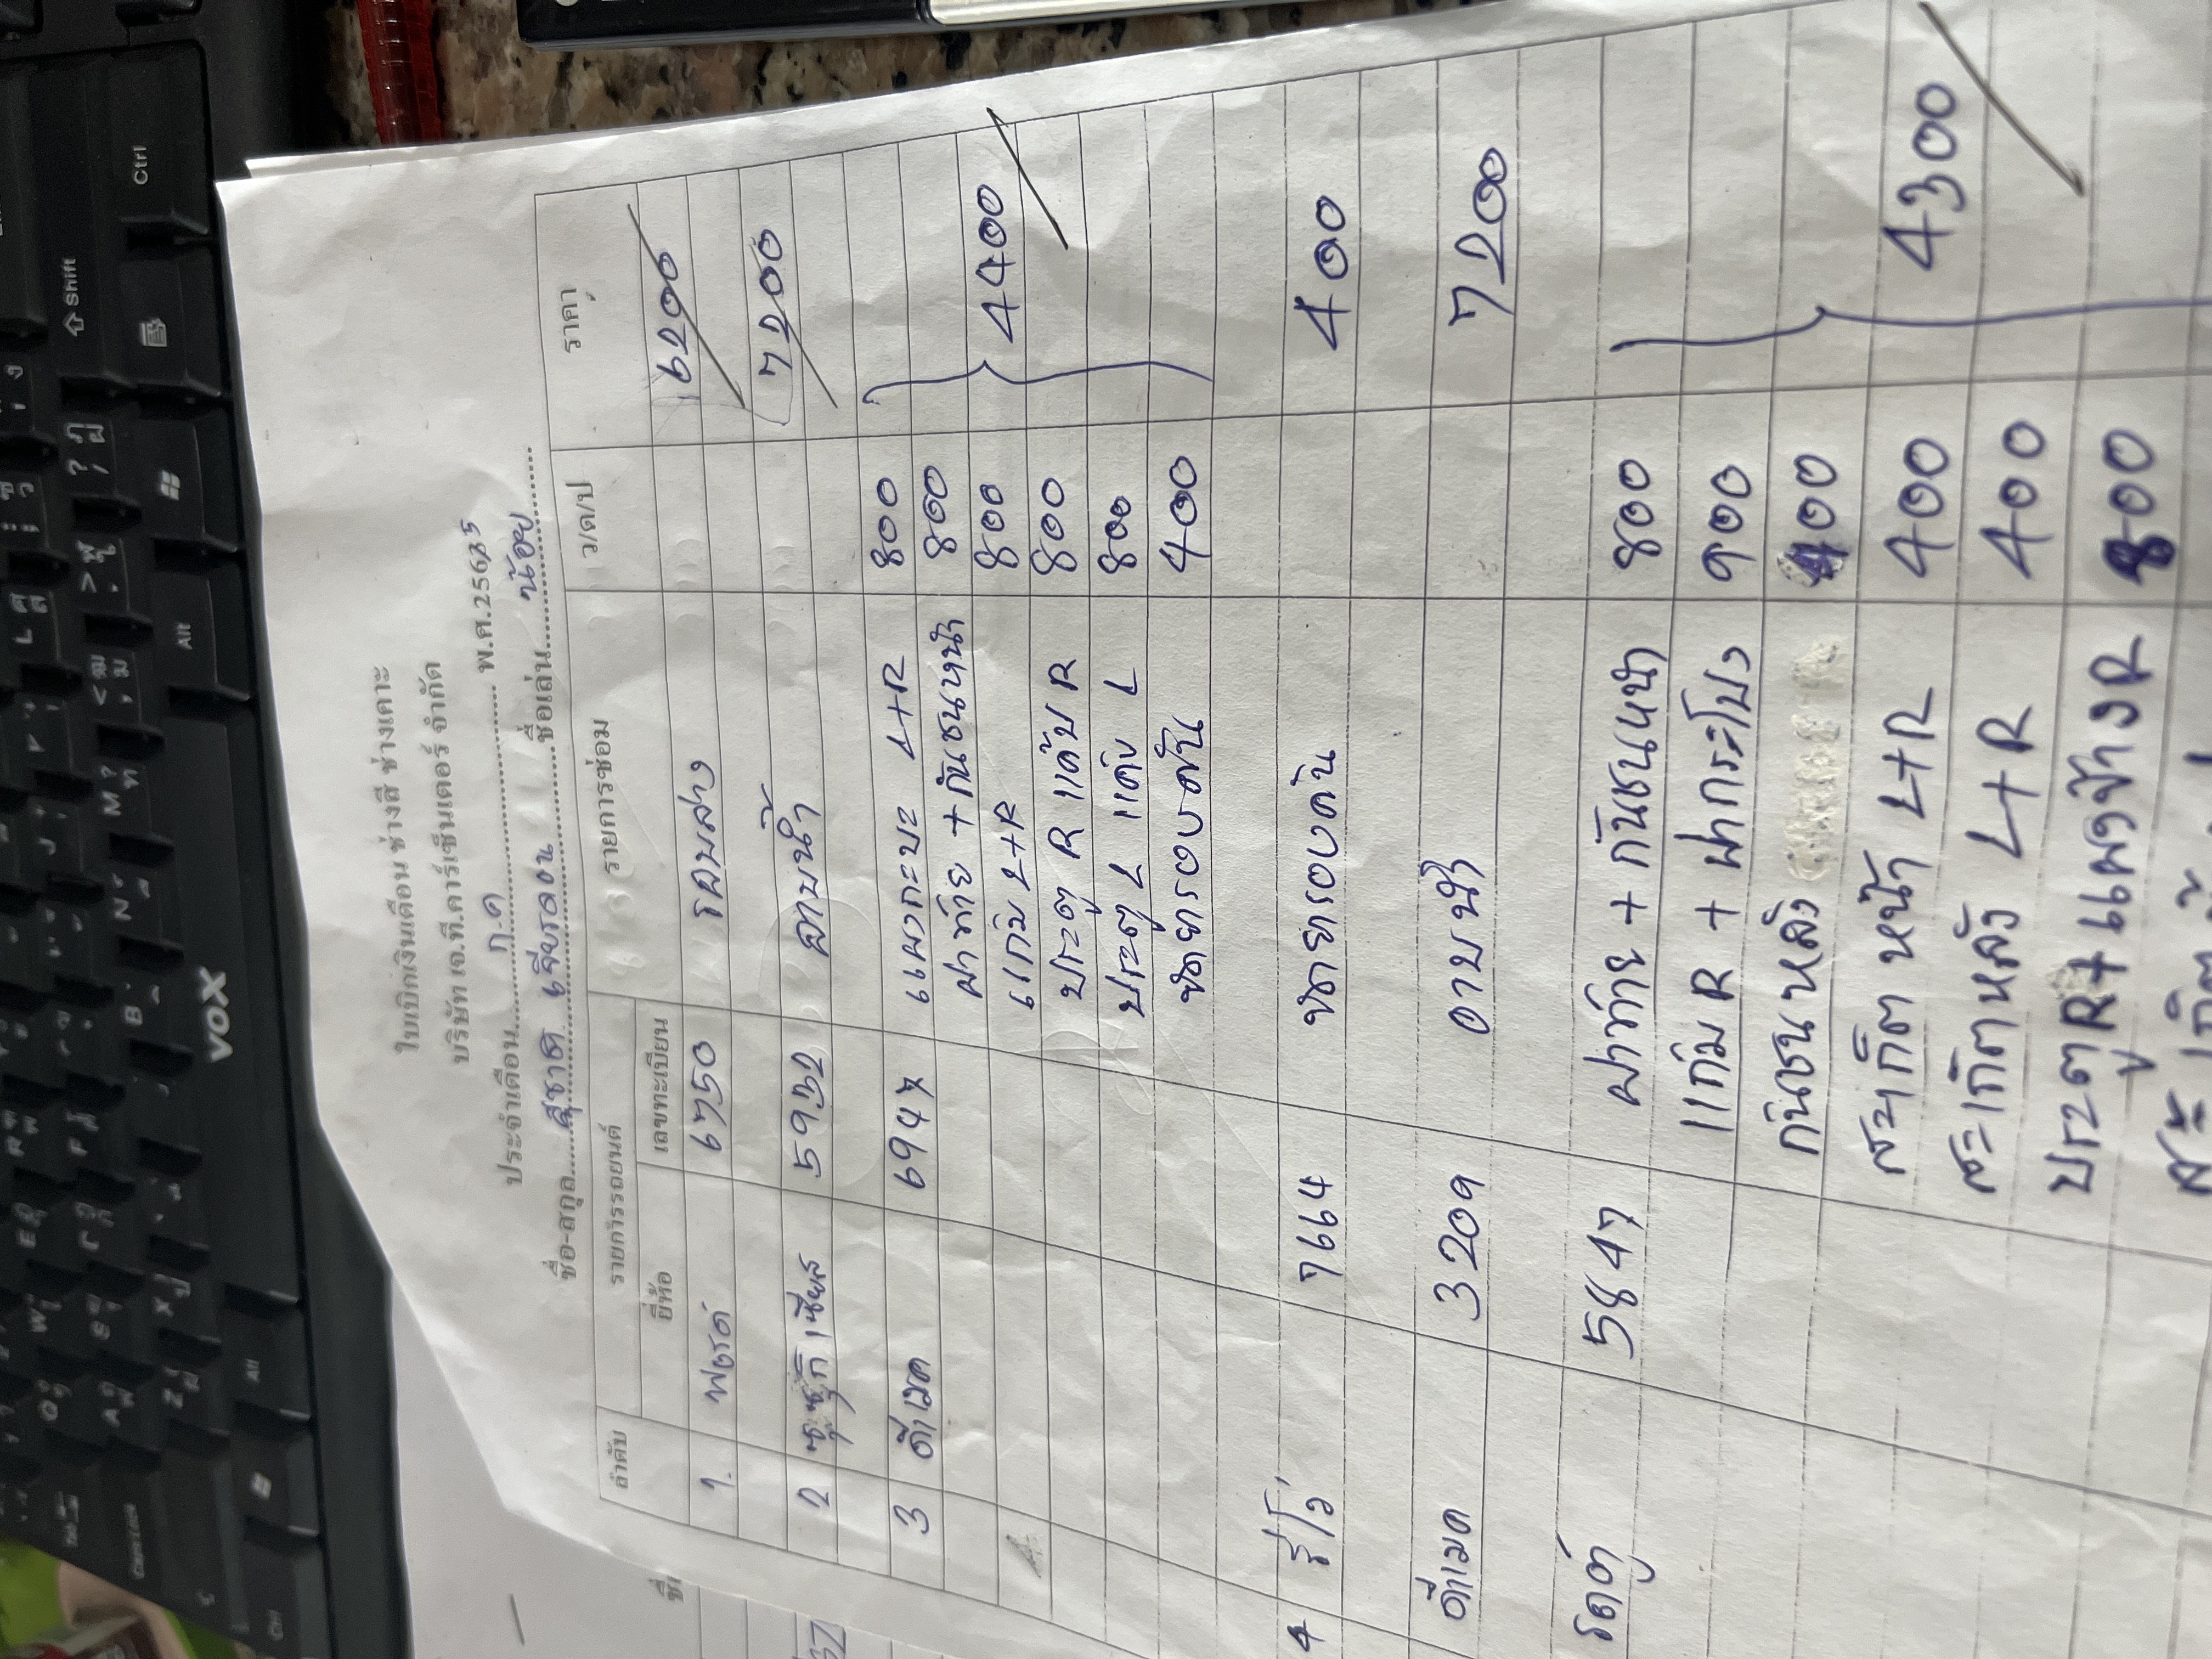 ใบเบิกเงินเดือน ช่างสี ช่างเคาะ
บริษัท เจ.ที.คาร์เซ็นเตอร์ จำกัด
ประจำเดือน ก.ค พ.ศ.2565
ชื่อ-สกุล สุชาติ ชื่อเล่น น้อย
ลำดับ รายการรถยนต์ รายการซ่อม ว/ด/ป ราคา
ยี่ห้อ เลขทะเบียน
1. ฟอร์ด 6750 6200
2 ซูซูกิ เซียส 5932 อาบน้ำ 7200
3 ดีแมค 6947 แผงกะบะ L+R 800
ฝาท้าย + กันชนหน้า 800
แก้ม L+R 800 4400
ประตู R แค๊บ R 800
ประตู L แค๊บ L 800
ขัดยารอบคัน 400
4 รีโว่ 7664 ขัดยารอบคัน 400
ดีแมค 3209 อาบน้ำ 7200
รถตู้ 5847 ฝาท้าย + กันชนหน้า 800
แก้ม R + ฝากระโปรง 900
กันชนหลัง 400
สะเกิ๊ต หน้า L+R 400 4300
สะเกิตหลัง L+R 400
ประตูR+แผงข้างR 800
VOX
Shift
Ctrl
Alt